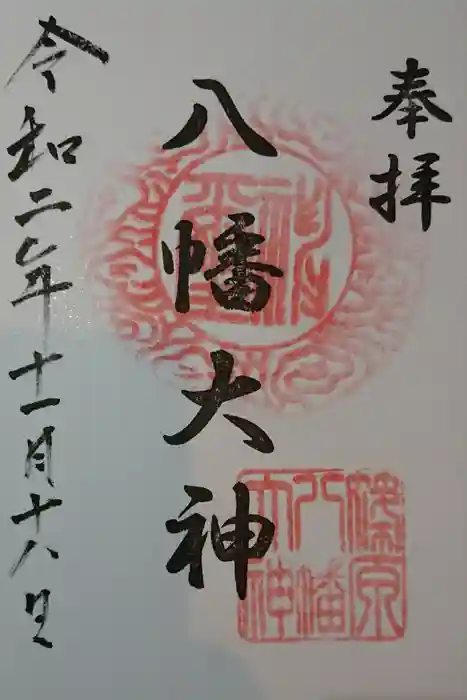 奉拝
八幡大神
令和二年十一月十八日
篠原
八幡
大神